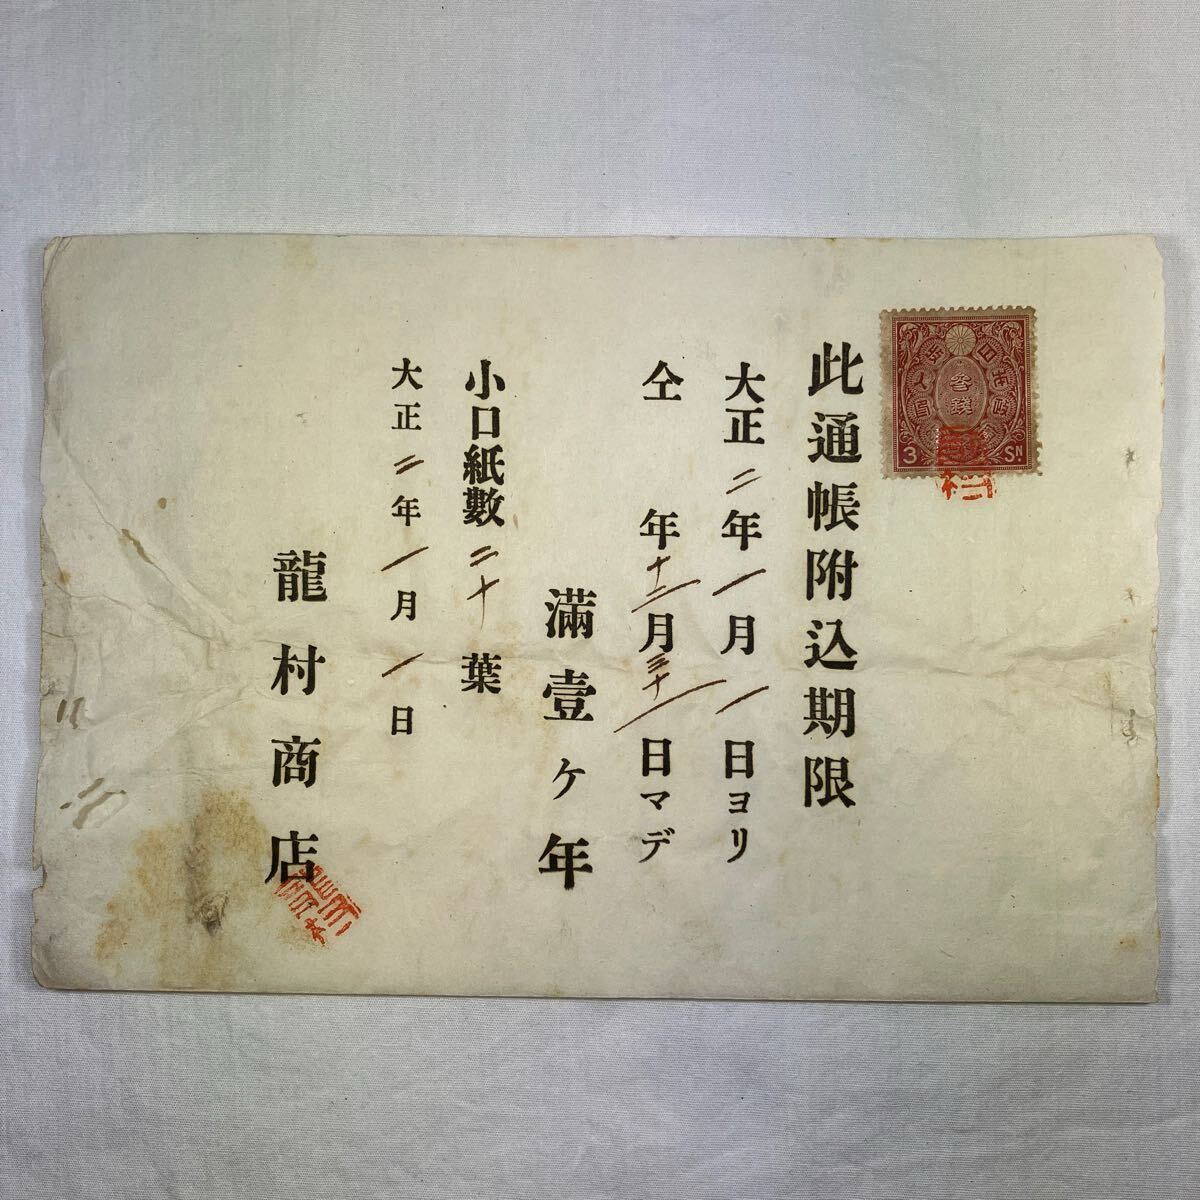 此通帳附込期限
大正二年一月一日ヨリ
仝 年十二月三十一日マデ
満壹ケ年
小口紙數二十葉
大正二年一月一日
龍村商店
3 SN